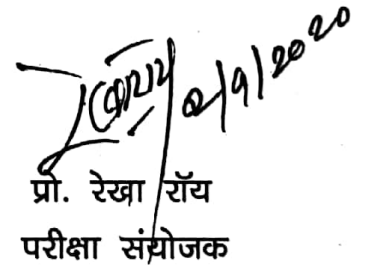 2/9/2020
प्रो. रेखा रॉय
परीक्षा संयोजक